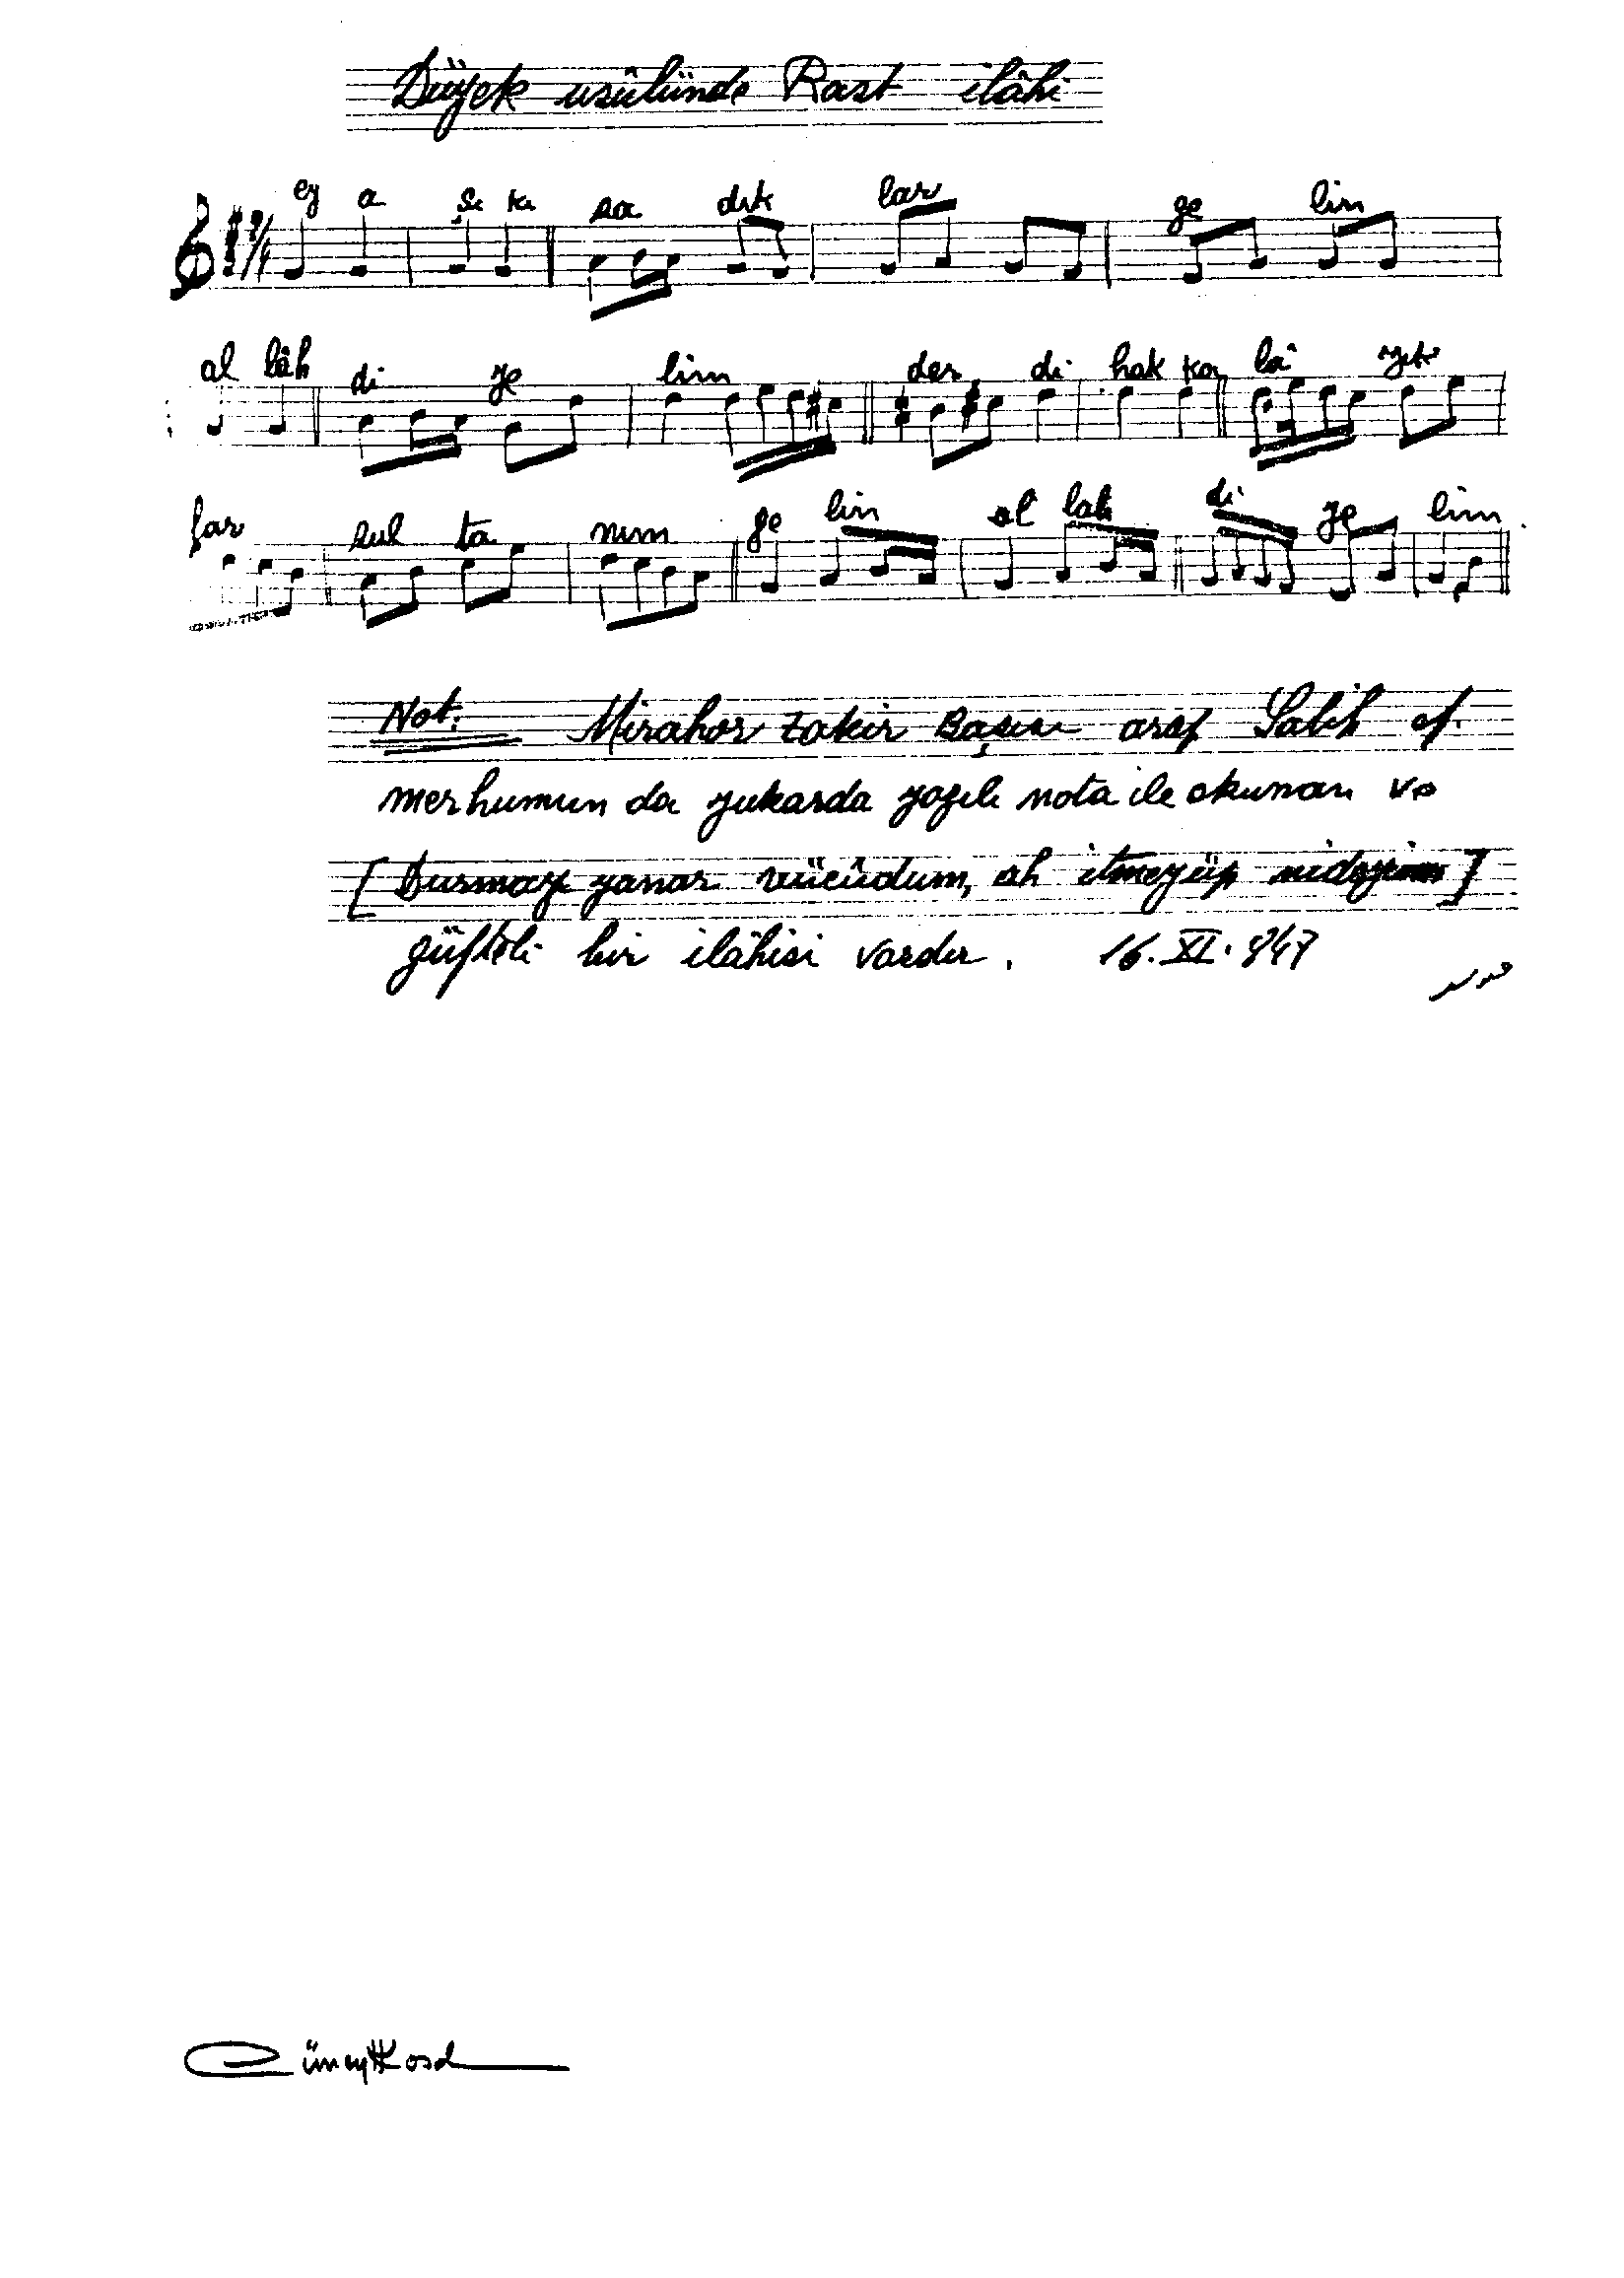 Düyek usûlünde Rast ilâhi
ey a şı kı sa dık lar ge lin
al lâh di ye lim der di hak ka lâ yık
far sul ta nım ge lin al lah di ye lim
Not: Mirahor zakir Başısı arap Salih ef.
merhumun da yukarda yazılı nota ile okunan ve
[Durmayıp yanar vücûdum, ah itmeyüp nideyim]
güfteli bir ilâhisi vardır. 16.XI.947
Cüneyt Kosal